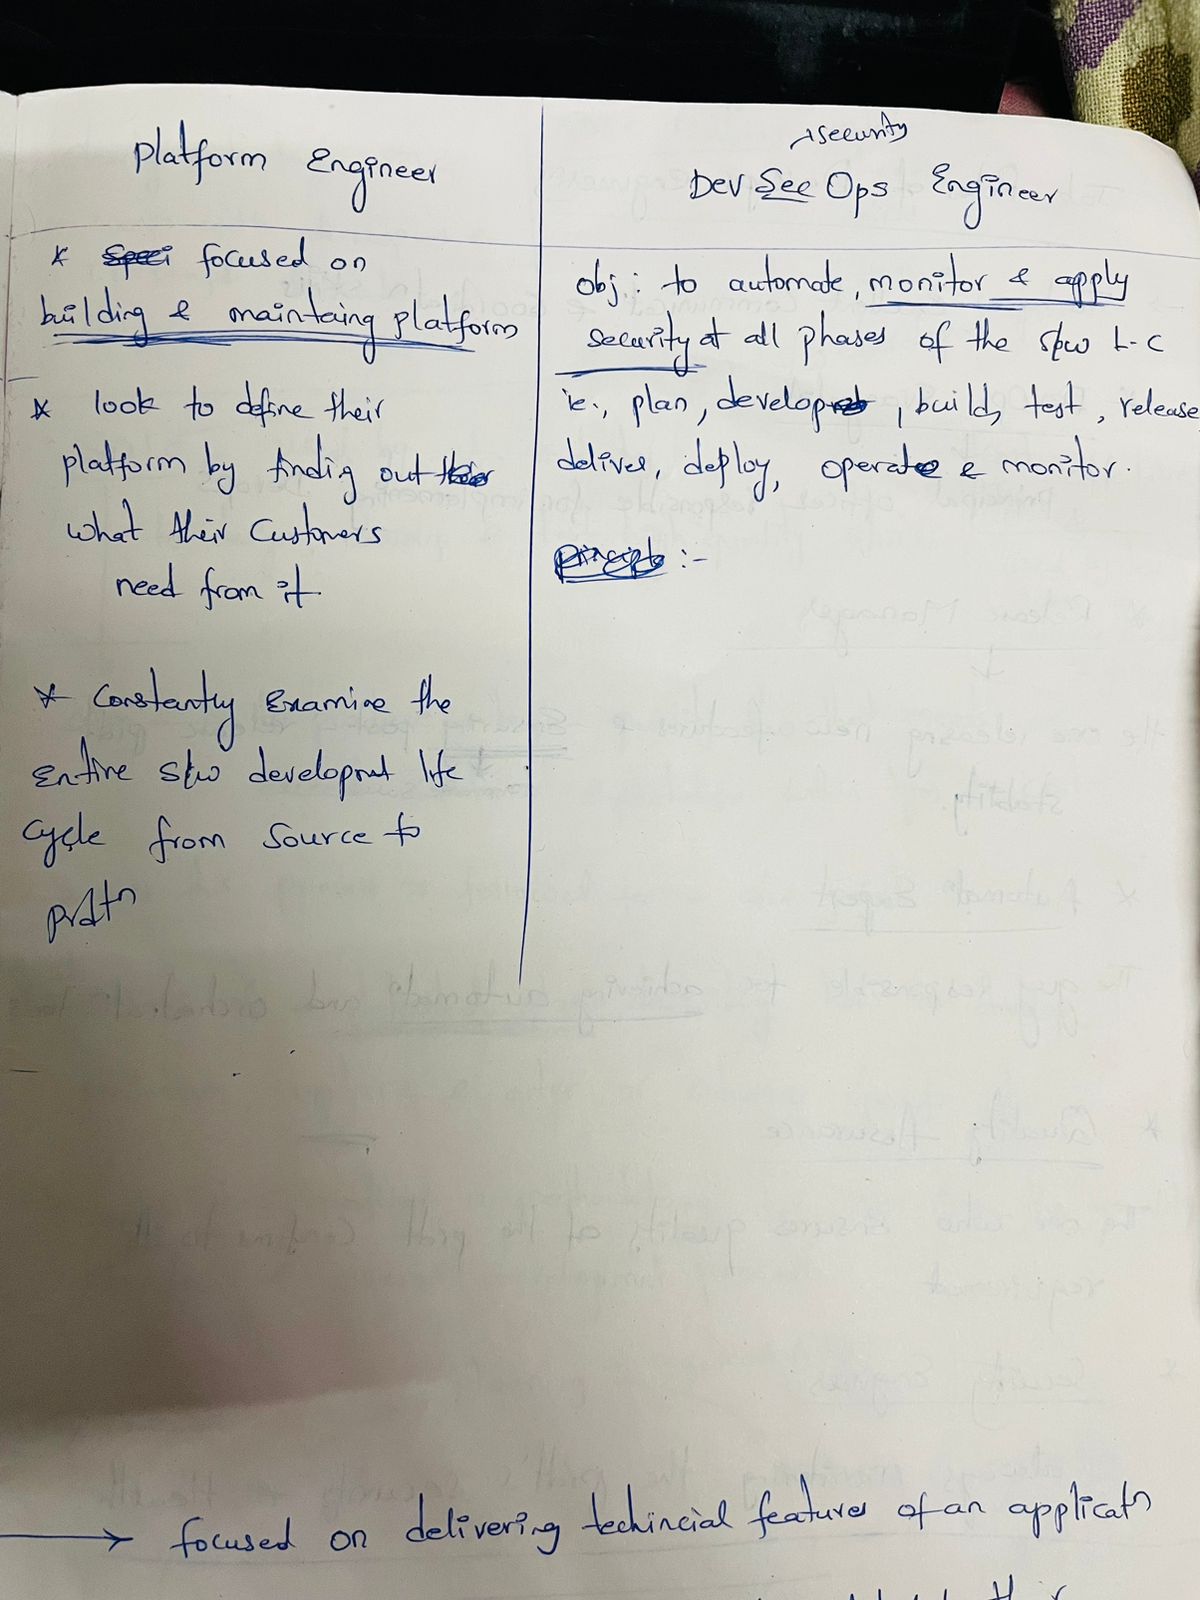 Platform Engineer
* focused on
building & maintaing platform
* look to define their
platform by findig out
what their Customers
need from it.
* Constantly Examine the
Entire s/w developmt life
cycle from source to
prdtn
security
Dev Sec Ops Engineer
obj: to automate, monitor & apply
security at all phases of the s/w L-C
ie., plan, develop, build, test, release,
deliver, deploy, operate & monitor.
:-
→ focused on delivering techincial features of an applicatn